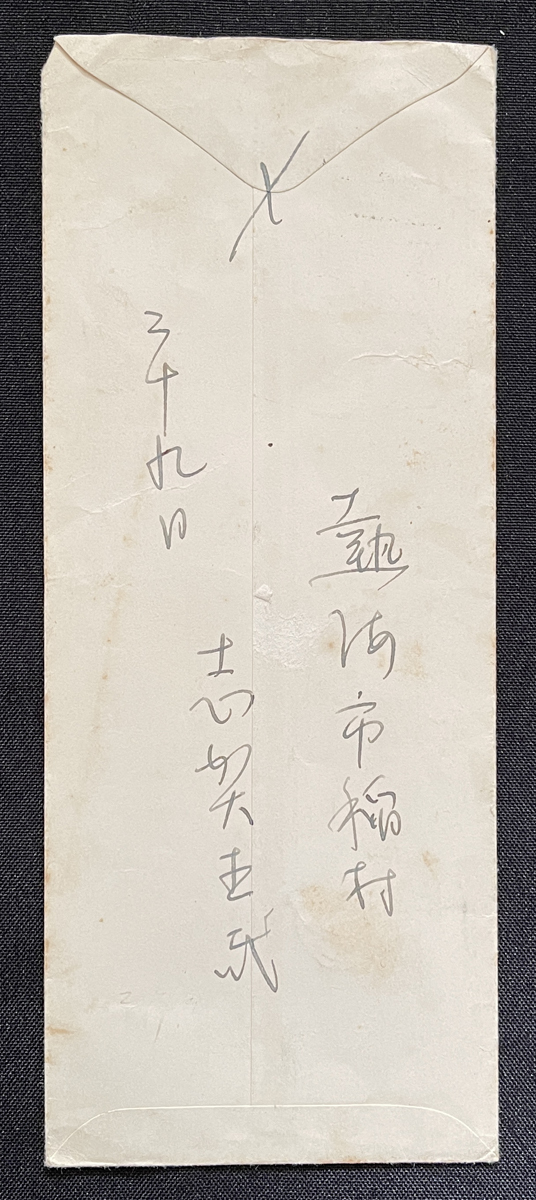 〆
熱海市稲村
志賀直哉
二十九日